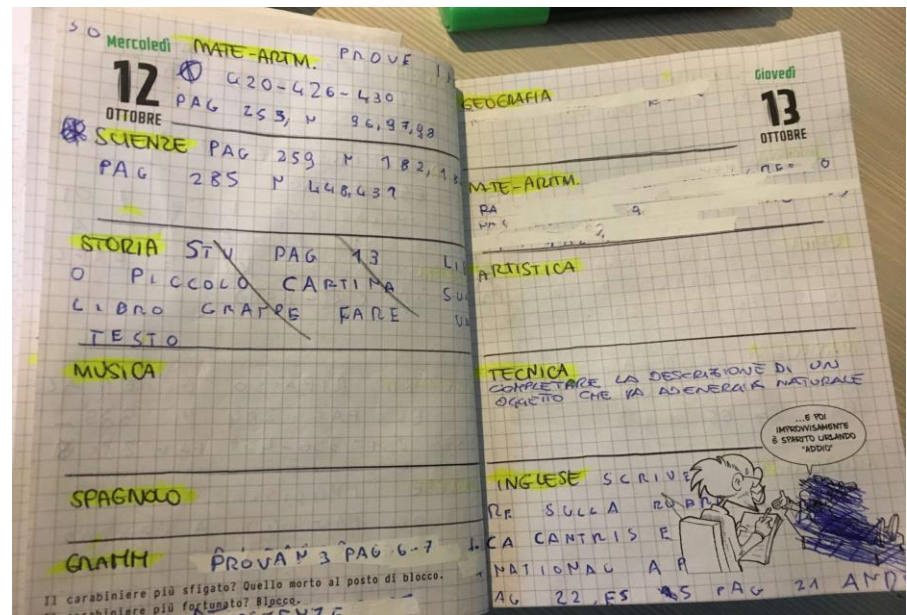 SO
Mercoledì
12
OTTOBRE
MATE-ARTM. PROVE
420-426-430
PAG 253, N 96,97,98
SCIENZE PAG 259 N 182,
PAG 285 N 448,431
STORIA STU PAG 13
O PICCOLO CARTINA
LIBRO GRANDE FARE
TESTO
MUSICA
SPAGNOLO
GRAMM PROVA N 3 PAG 6-7
Il carabiniere più sfigato? Quello morto al posto di blocco.
più fortunato? Blocco.
Giovedì
13
OTTOBRE
GEOGRAFIA
MATE-ARITM.
ARTISTICA
TECNICA
COMPLETARE LA DESCRIZIONE DI UN
OGGETTO CHE VA AD ENERGIA NATURALE
...E POI
IMPROVVISAMENTE
È SPARITO URLANDO
"ADDIO"
INGLESE SCRIVE
RE SULLA RUBRI
CA
NATIONAL
AG 22, ES 5 PAG 21 AND